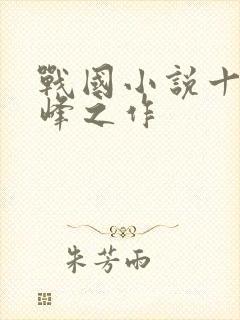 戰國小説十
峰之作
朱芳雨